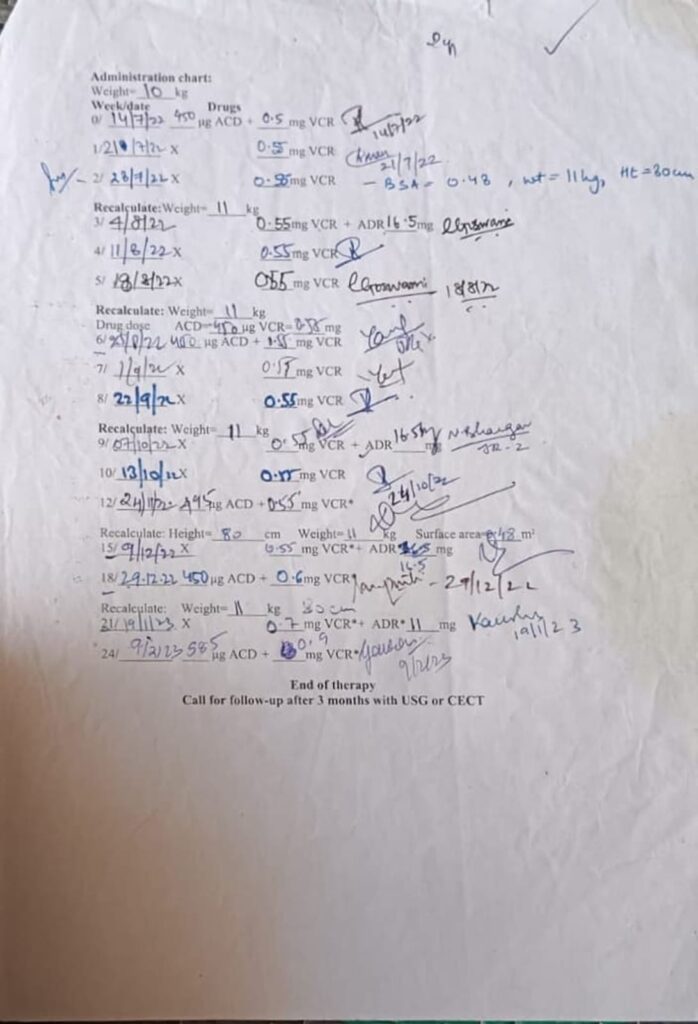 Administration chart:
Weight= 10 kg
Week/date Drugs
0/ 14/7/22 450 µg ACD + 0.5 mg VCR 14/7/22
1/ 21/7/22 X 0.55 mg VCR 21/7/22
2/ 28/7/22 X 0.55 mg VCR - BSA = 0.48, wt = 11 kg, Ht = 80cm
Recalculate: Weight= 11 kg
3/ 4/8/22 0.55 mg VCR + ADR 16.5 mg RGoswami
4/ 11/8/22 X 0.55 mg VCR
5/ 18/8/22 X 055 mg VCR RGoswami 18/8/22
Recalculate: Weight= 11 kg
Drug dose ACD= 450 µg VCR= 0.55 mg
6/ 450 µg ACD + mg VCR
7/ 1/9/22 X 0.55 mg VCR
8/ 22/9/22 X 0.55 mg VCR
Recalculate: Weight= 11 kg
9/ 07/10/22 X 0.55 mg VCR + ADR 16.5mg mg JR-2
10/ 13/10/22 X 0.55 mg VCR
12/ 495 µg ACD + 0.55 mg VCR* 24/10/22
Recalculate: Height= 80 cm Weight= 11 kg Surface area= 0.48 m²
15/ 9/12/22 X 0.55 mg VCR*+ ADR 16.5 mg
16.5
18/ 29.12.22 450 µg ACD + 0.6 mg VCR - 29/12/22
Recalculate: Weight= 11 kg 80cm
21/ 19/1/23 X 0.7 mg VCR*+ ADR* 11 mg 19/1/23
24/ 9/2/23 585 µg ACD + 0.9 mg VCR* 9/2/23
End of therapy
Call for follow-up after 3 months with USG or CECT